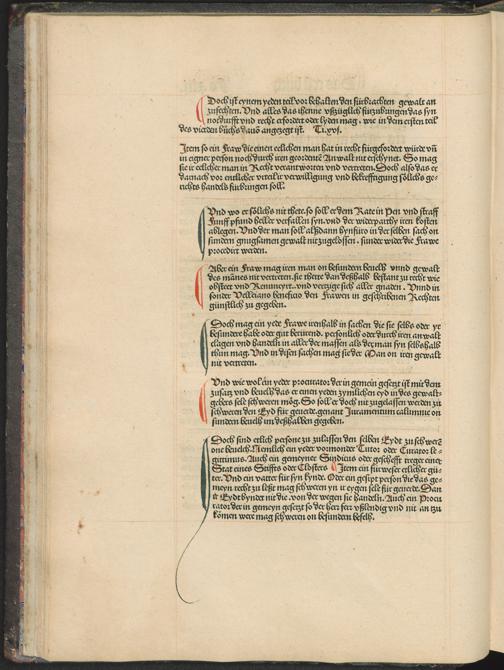 Doch ist eynem yeden teil vor behalten den fürbrachten gewalt an
zufechten. Vnd alles das ihenne vßzüglich fürzubringen das syn
notdurfft vnd recht erfordert oder lyden mag. wie in dem ersten teil
des vierden büchs dauõ angezegt ist. Ti. xvj.
Item so ein Fraw die einen eelichen man hat in recht fürgefordert würde vñ
in eigner person noch durch iren geordentẽ Anwalt nit erschynet. So mag
sie ir eelicher man in Recht verantworten vnd vertreten. Doch also das er
darnach vor entlicher vrteil ir verwilligung vnd bekrefftigung sölichs ge-
richts handels fürbringen soll.
Vnd wo er sölichs nit thete. so soll er dem Rate in Pen vnd straff
Fünff pfund heller verfallen syn. vnd der widerparthy iren kosten
ablegen. Vnd der man soll alßdann hynfüro in der selben sach on
sundern gnugsamen gewalt nit zugelossen. sunder wider die Frawe
procedirt werden.
Aber ein Fraw mag iren man on besundern beuelh vnnd gewalt
des mãnes nit vertreten. sie thette dan deßhalb bestant zu recht wie
obsteet vnd Renuncyrt. vnd verzige sich aller gnaden. Vnnd in
sonder Velleiano beneficio den Frawen in geschribenen Rechten
günstlich zu gegeben.
Doch mag ein yede Frawe irenhalb in sachen die sie selbs oder yr
besundere habe oder gut berürend. persönlich oder durch iren anwalt
clagen vnd handeln in aller der massen als der man syn selbs halb
thun mag. Vnd in disen sachen mag sie der Man on iren gewalt
nit vertreten.
Vnd wie wol ein yeder procurator der in gemein gesetzt ist mit dem
zusatz vnd beuelh das er einen yeden zymlichen eyd in des gewalt-
gebers sele schweren mög. So soll er doch nit zugelassen werden zu
schweren den Eyd für geuerde. genant Juramentum calumnie on
sundern beuelh im deßhalben gegeben.
Doch sind etlich personẽ zu zulassen den selben Eydt zu schwerẽ
one beuelch. Nemlich ein yeder vormonder Tutor oder Curator le-
gittimus. Auch ein gemeyner Sindicus oder geschefft treger einer
Stat eines Stiffts oder Closters Item ein fürweser etlicher gü-
ter. Vnd ein vatter für syn kynde. Oder ein gesipt person die das ge-
meyn recht zu leßt mag schweren yn ir eygen sele für geuerde. Dan
ir Eydt byndet nit die. von der wegen sie handeln. Auch ein Procu
rator der in gemeyn gesetzt so der herr ferr vßlendig vnd nit an zu
komen were mag schweren on besundern befelh.